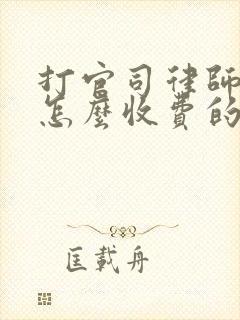 打官司律師
怎麼收費的
匡載舟